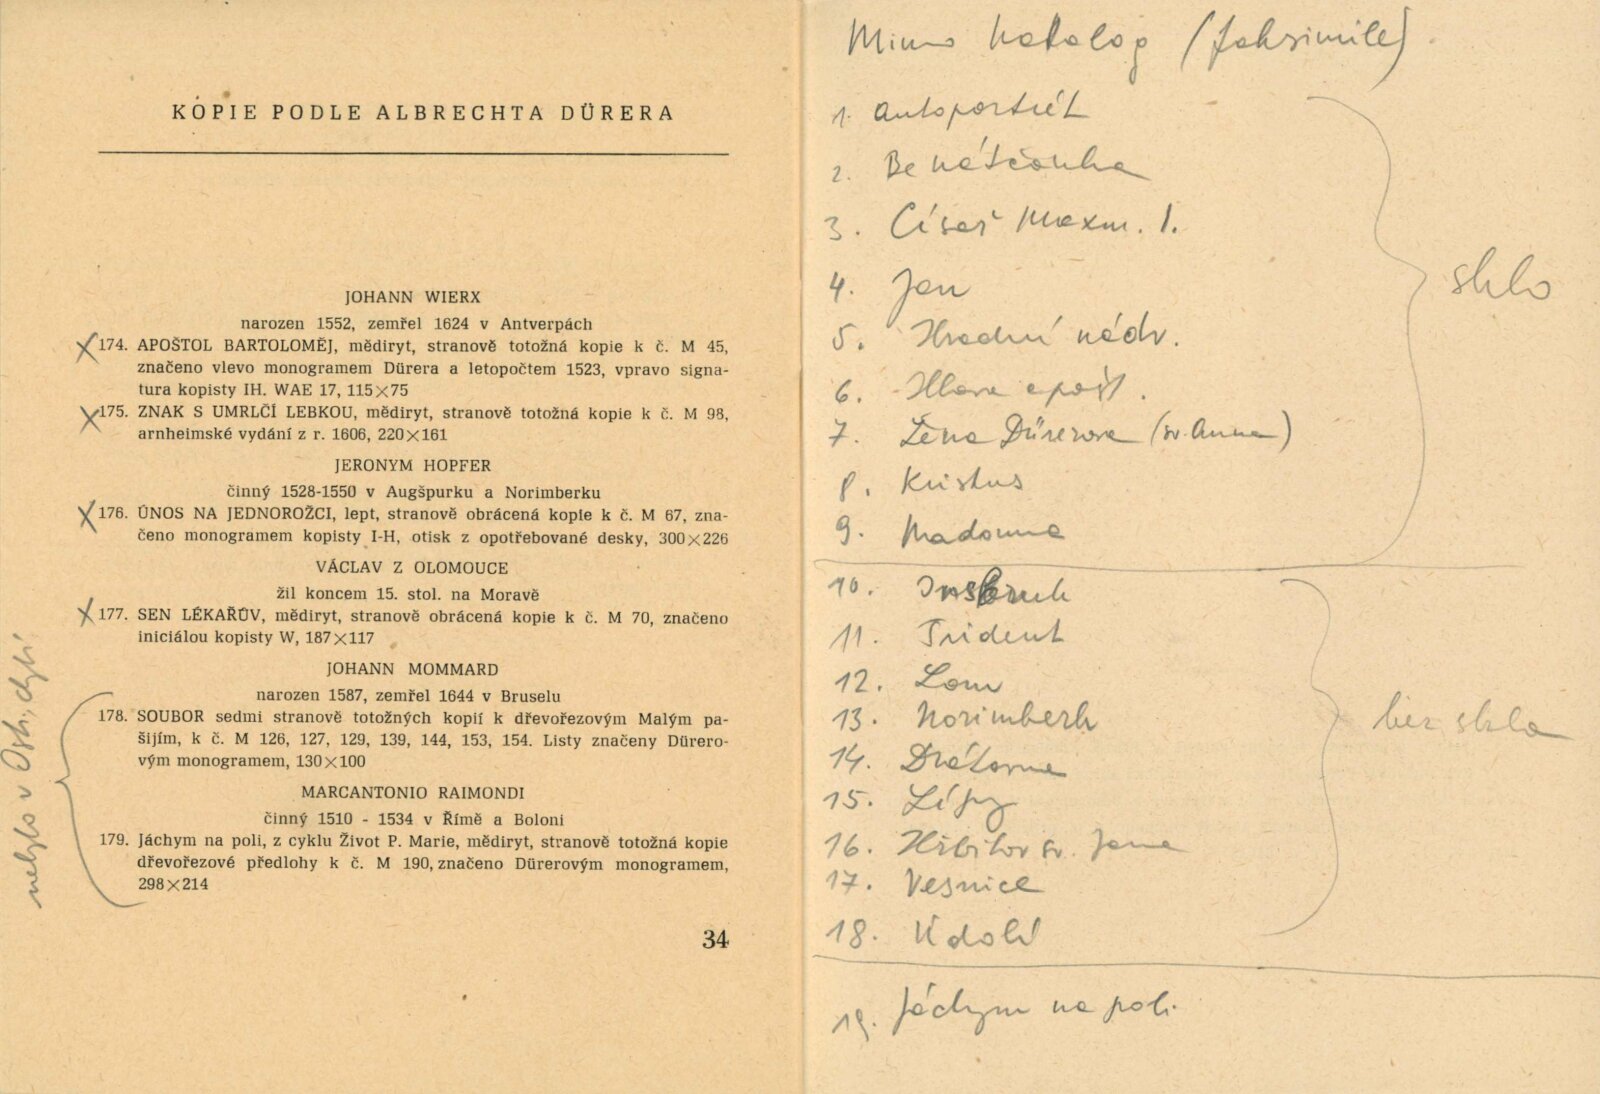 KOPIE PODLE ALBRECHTA DÜRERA
JOHANN WIERX
narozen 1552, zemřel 1624 v Antverpách
174. APOŠTOL BARTOLOMĚJ, mědiryt, stranově totožná kopie k č. M 45,
značeno vlevo monogramem Dürera a letopočtem 1523, vpravo signa-
tura kopisty IH. WAE 17, 115×75
175. ZNAK S UMRLČÍ LEBKOU, mědiryt, stranově totožná kopie k č. M 98,
arnheimské vydání z r. 1606, 220×161
JERONYM HOPFER
činný 1528-1550 v Augšpurku a Norimberku
176. ÚNOS NA JEDNOROŽCI, lept, stranově obrácená kopie k č. M 67, zna-
čeno monogramem kopisty I-H, otisk z opotřebované desky, 300×226
VÁCLAV Z OLOMOUCE
žil koncem 15. stol. na Moravě
177. SEN LÉKAŘŮV, mědiryt, stranově obrácená kopie k č. M 70, značeno
iniciálou kopisty W, 187×117
JOHANN MOMMARD
narozen 1587, zemřel 1644 v Bruselu
178. SOUBOR sedmi stranově totožných kopií k dřevořezovým Malým pa-
šijím, k č. M 126, 127, 129, 139, 144, 153, 154. Listy značeny Dürero-
vým monogramem, 130×100
MARCANTONIO RAIMONDI
činný 1510 - 1534 v Římě a Boloni
179. Jáchym na poli, z cyklu Život P. Marie, mědiryt, stranově totožná kopie
dřevořezové předlohy k č. M 190, značeno Dürerovým monogramem,
298×214
34
nebylo v Ostr., chybí
Mimo katalog (faksimile).
1. Autoportrét
2. Benátčanka
3. Císař Maxm. I.
4. Jan
5. Hradní nádv.
6. Hlava apošt.
7. Žena Dürerova (sv. Anna)
8. Kristus
9. Madonna
sklo
10. Insbruk
11. Trident
12. Lom
13. Norimberk
14. Drátovna
15. Lípy
16. Hřbitov sv. Jana
17. Vesnice
18. Údolí
bez skla
19. Jáchym na poli.